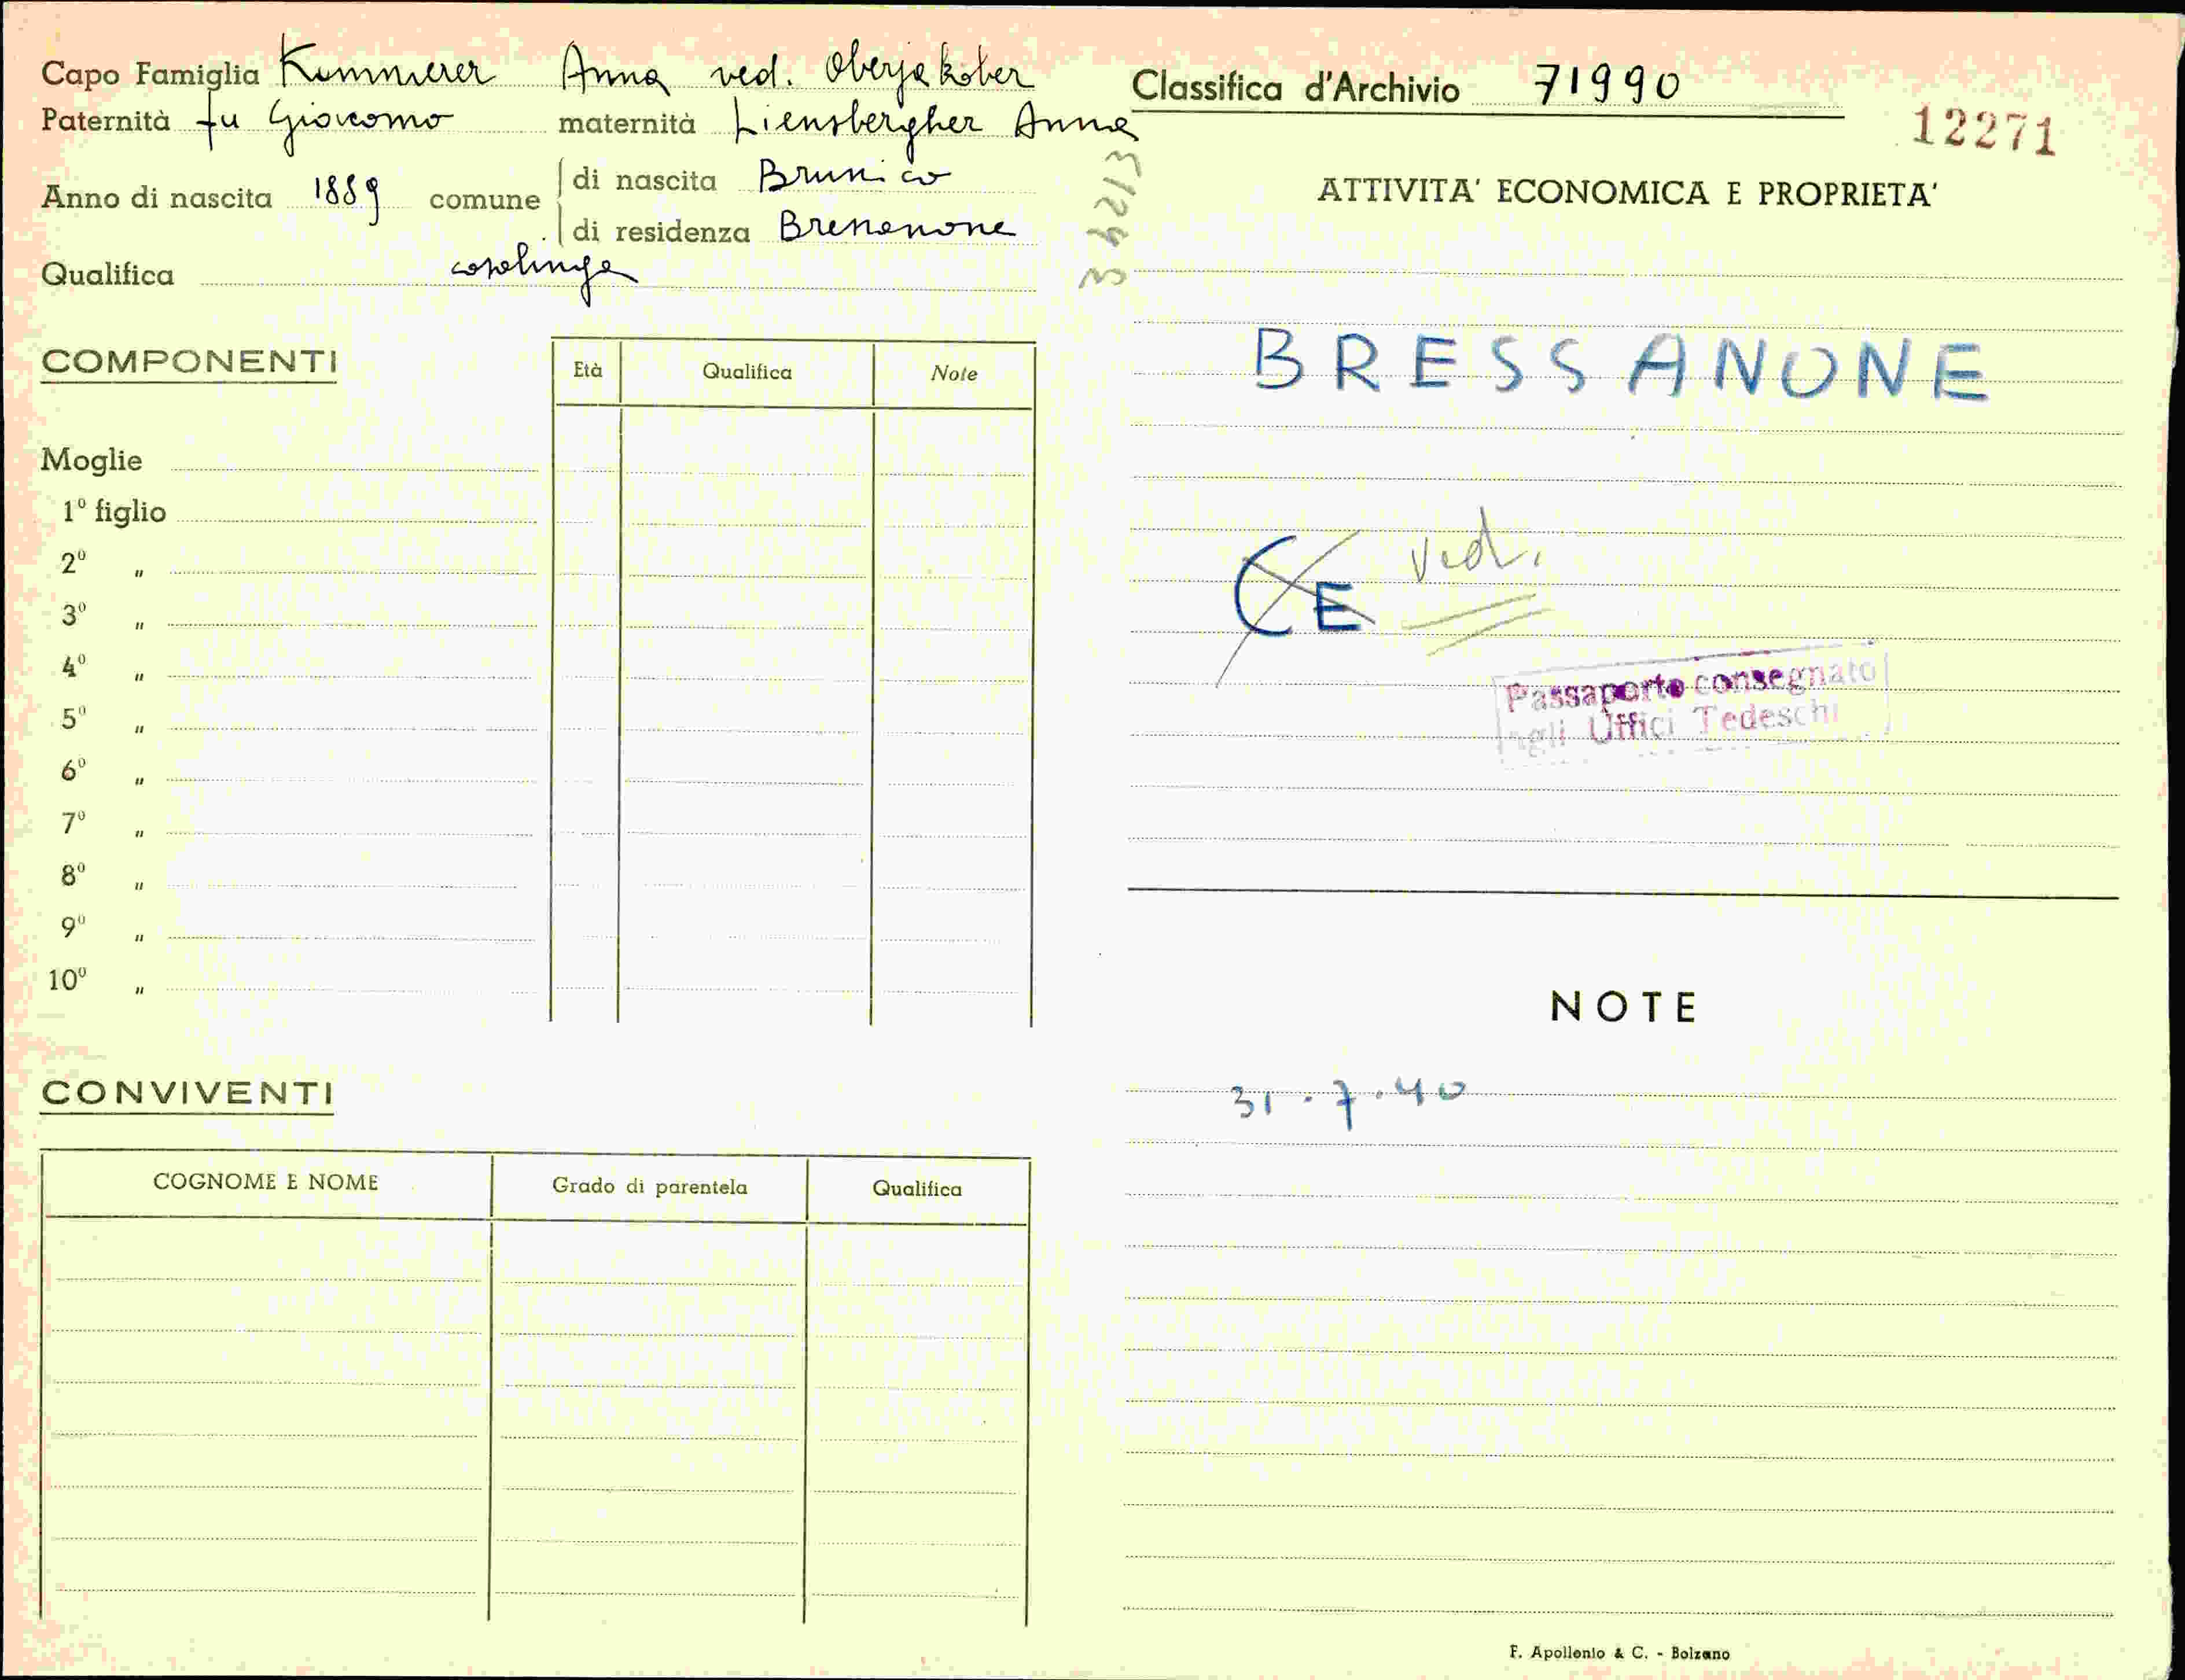 Capo Famiglia Kammerer Anna ved. Oberjakober
Paternità fu Giacomo maternità Liensbergher Anna
Anno di nascita 1889 comune di nascita Brunico
di residenza Bressanone
Qualifica casalinga
COMPONENTI
Età Qualifica Note
Moglie
1º figlio
2º "
3º "
4º "
5º "
6º "
7º "
8º "
9º "
10º "
CONVIVENTI
COGNOME E NOME Grado di parentela Qualifica
Classifica d'Archivio 71990
12271
ATTIVITA' ECONOMICA E PROPRIETA'
BRESSANONE
CE ved.
Passaporto consegnato
agli Uffici Tedeschi
NOTE
31.7.40
F. Apollonio & C. - Bolzano